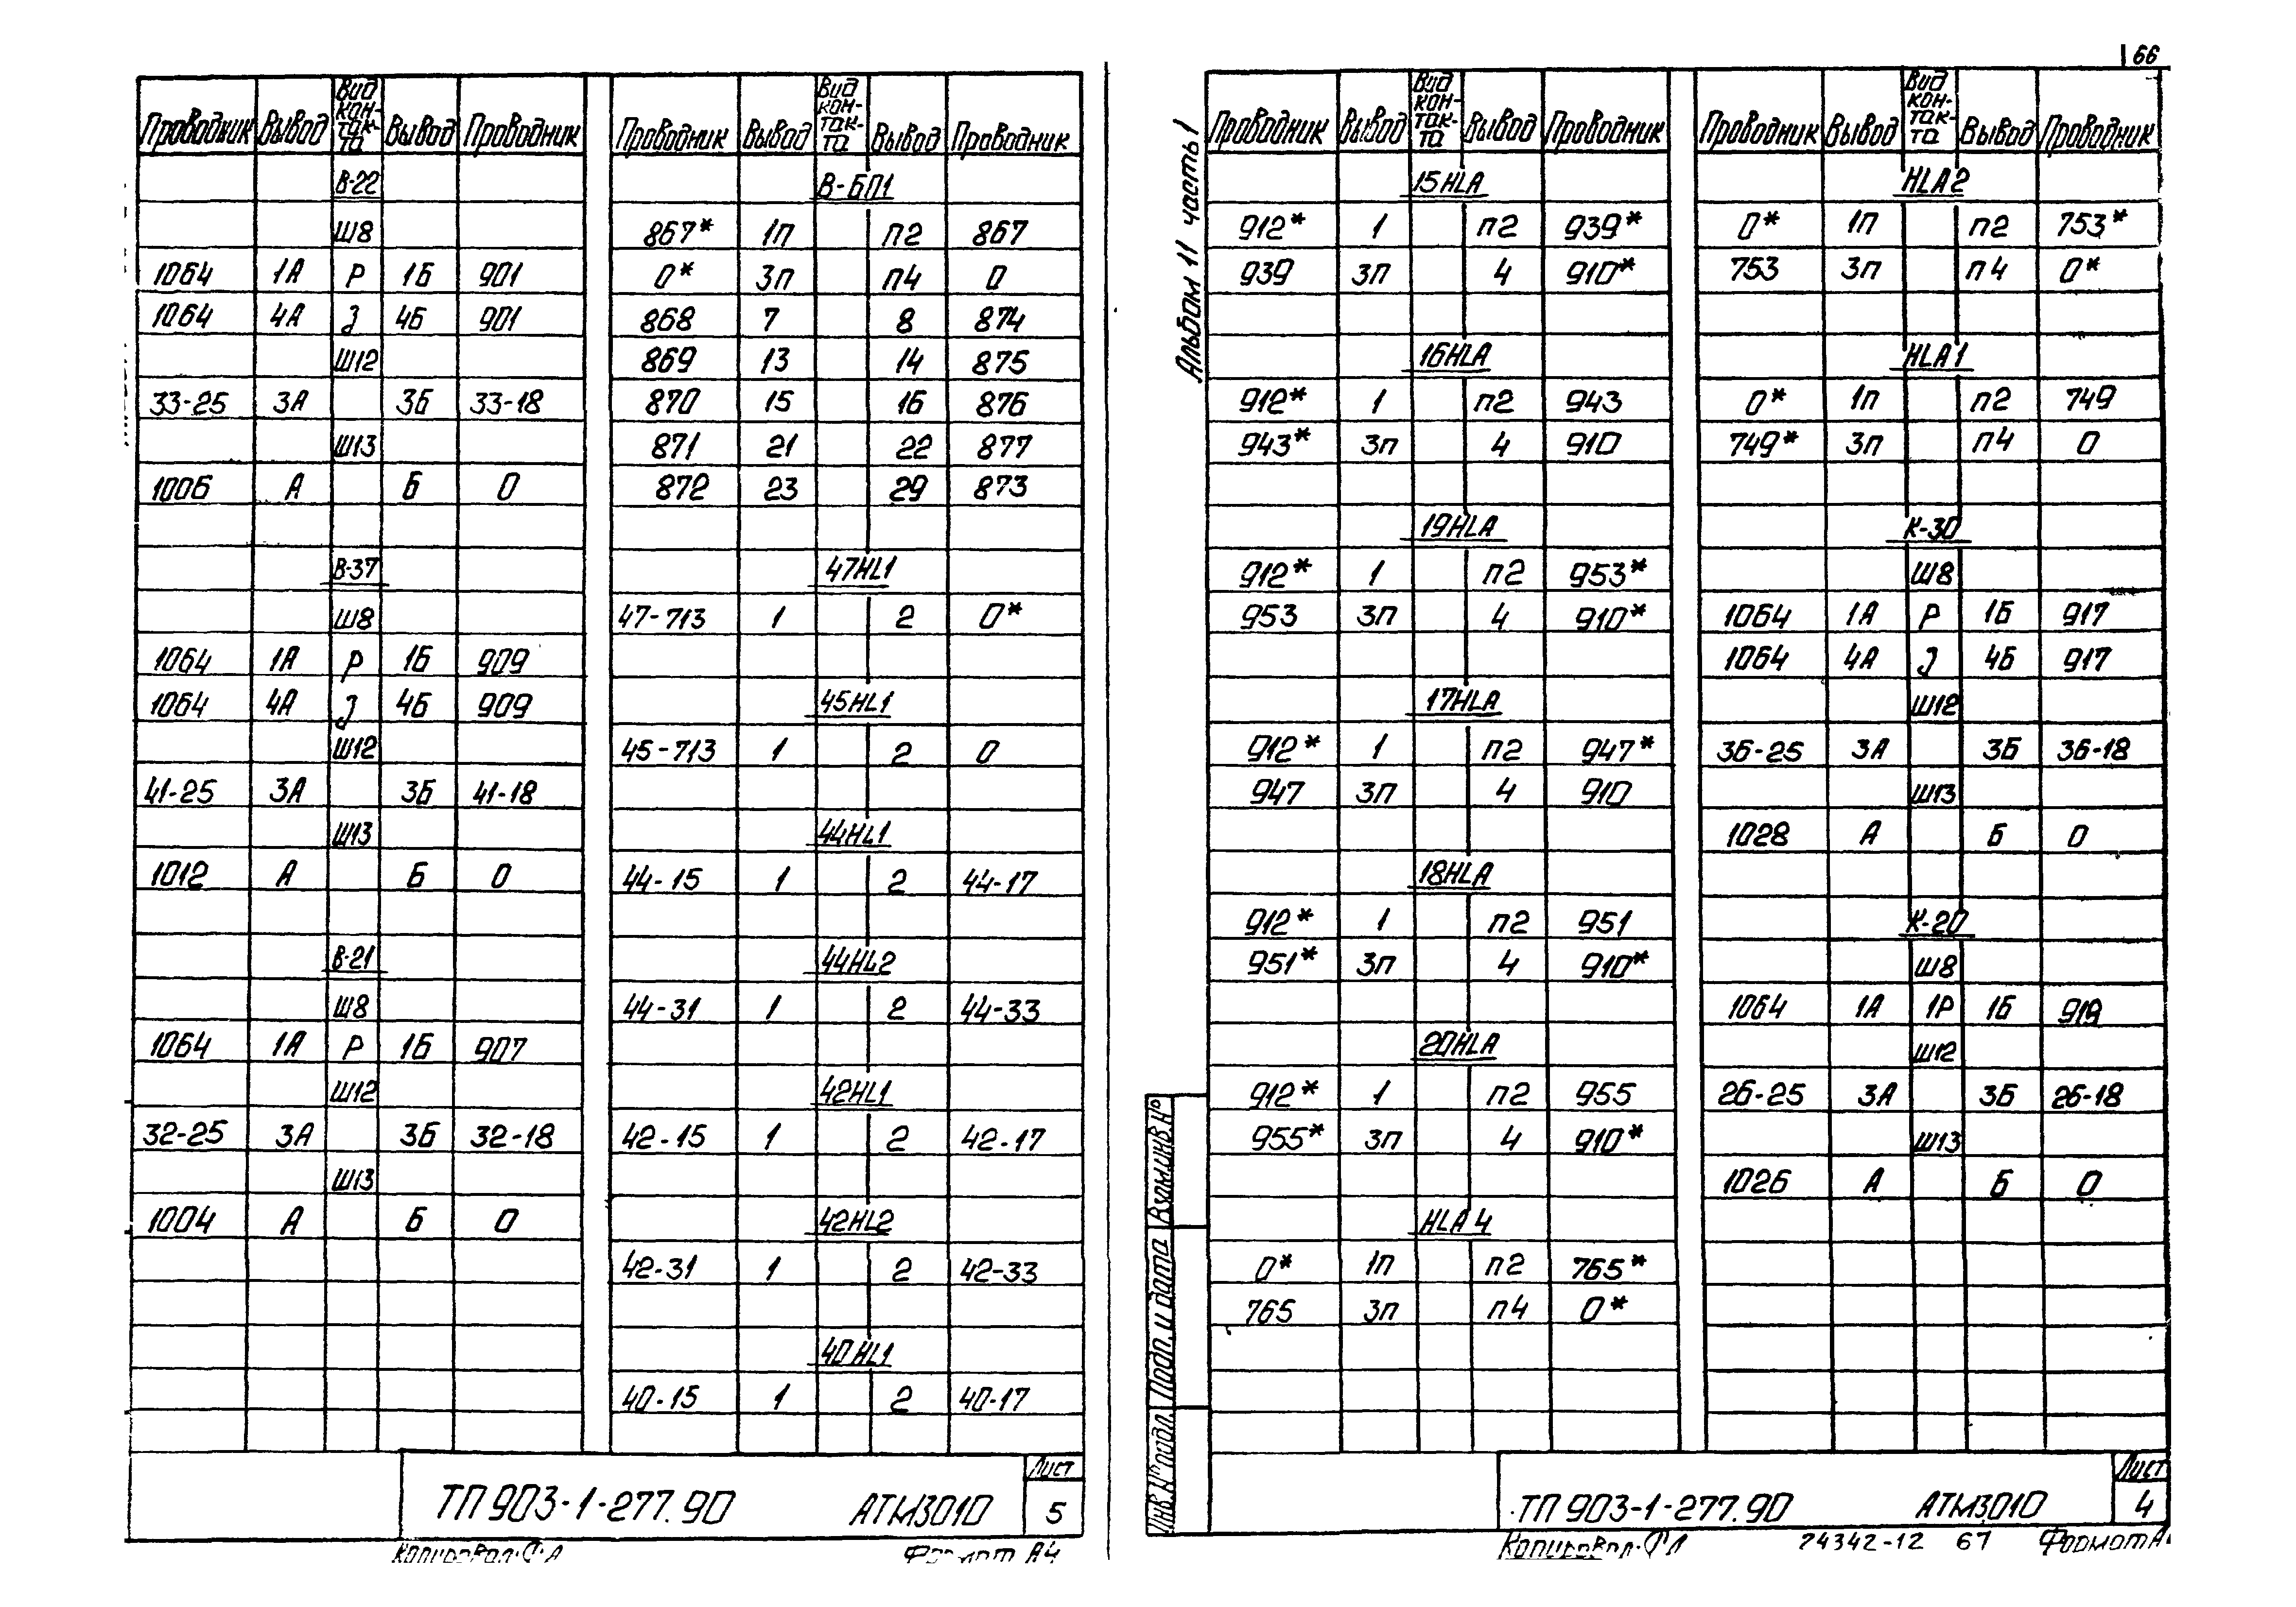 66
Проводник Вывод Вид кон-так-та Вывод Проводник
В-22
Ш8
1064 1А Р 1Б 901
1064 4А З 4Б 901
Ш12
33-25 3А 3Б 33-18
Ш13
1006 А Б 0
В-37
Ш8
1064 1А Р 1Б 909
1064 4А З 4Б 909
Ш12
41-25 3А 3Б 41-18
Ш13
1012 А Б 0
В-21
Ш8
1064 1А Р 1Б 907
Ш12
32-25 3А 3Б 32-18
Ш13
1004 А Б 0
Проводник Вывод Вид кон-так-та Вывод Проводник
В-БП1
867* 1п п2 867
0* 3п п4 0
868 7 8 874
869 13 14 875
870 15 16 876
871 21 22 877
872 23 29 873
47HL1
47-713 1 2 0*
45HL1
45-713 1 2 0
44HL1
44-15 1 2 44-17
44HL2
44-31 1 2 44-33
42HL1
42-15 1 2 42-17
42HL2
42-31 1 2 42-33
40HL1
40-15 1 2 40-17
ТП 903-1-277.90 АТМ3010
Лист
5
Копировал
Формат А4
Альбом 11 часть 1
Проводник Вывод Вид кон-так-та Вывод Проводник
15HLA
912* 1 п2 939*
939 3п 4 910*
16HLA
912* 1 п2 943
943* 3п 4 910
19HLA
912* 1 п2 953*
953 3п 4 910*
17HLA
912* 1 п2 947*
947 3п 4 910
18HLA
912* 1 п2 951
951* 3п 4 910*
20HLA
912* 1 п2 955
955* 3п 4 910*
HLA4
0* 1п п2 765*
765 3п п4 0*
Проводник Вывод Вид кон-так-та Вывод Проводник
HLA2
0* 1п п2 753*
753 3п п4 0*
HLA1
0* 1п п2 749
749* 3п п4 0
К-30
Ш8
1064 1А Р 1Б 917
1064 4А З 4Б 917
Ш12
36-25 3А 3Б 36-18
Ш13
1028 А Б 0
К-20
Ш8
1064 1А 1Р 1Б 919
Ш12
26-25 3А 3Б 26-18
Ш13
1026 А Б 0
Инв.№подл. Подп. и дата Взам.инв.№
ТП 903-1-277.90 АТМ3010
Лист
4
Копировал
24342-12 67
Формат А